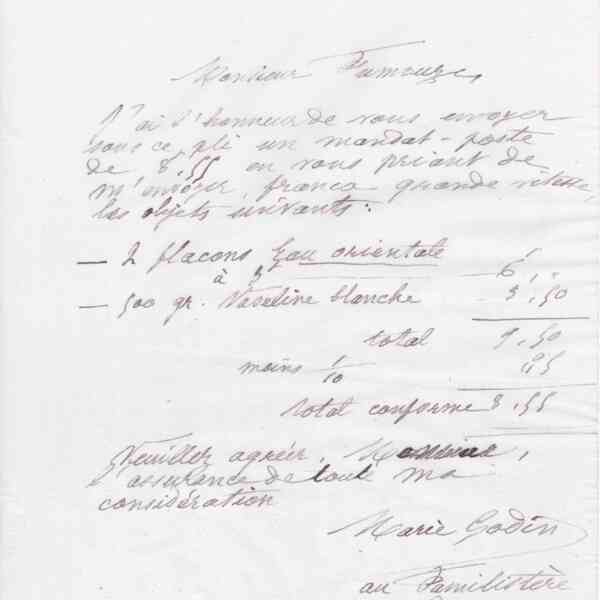 Monsieur Fumouze,
J'ai l'honneur de vous envoyer
sous ce pli un mandat-poste
de 8,55 en vous priant de
m'envoyer, franco grande vitesse,
les objets suivants :
— 2 flacons Eau orientale
à 3 6,"
— 500 gr. Vaseline blanche 3,50
total 9,50
moins 1/10 95
total conforme 8,55
Veuillez agréer, Monsieur,
l'assurance de toute ma
considération
Marie Godin
au Familistère